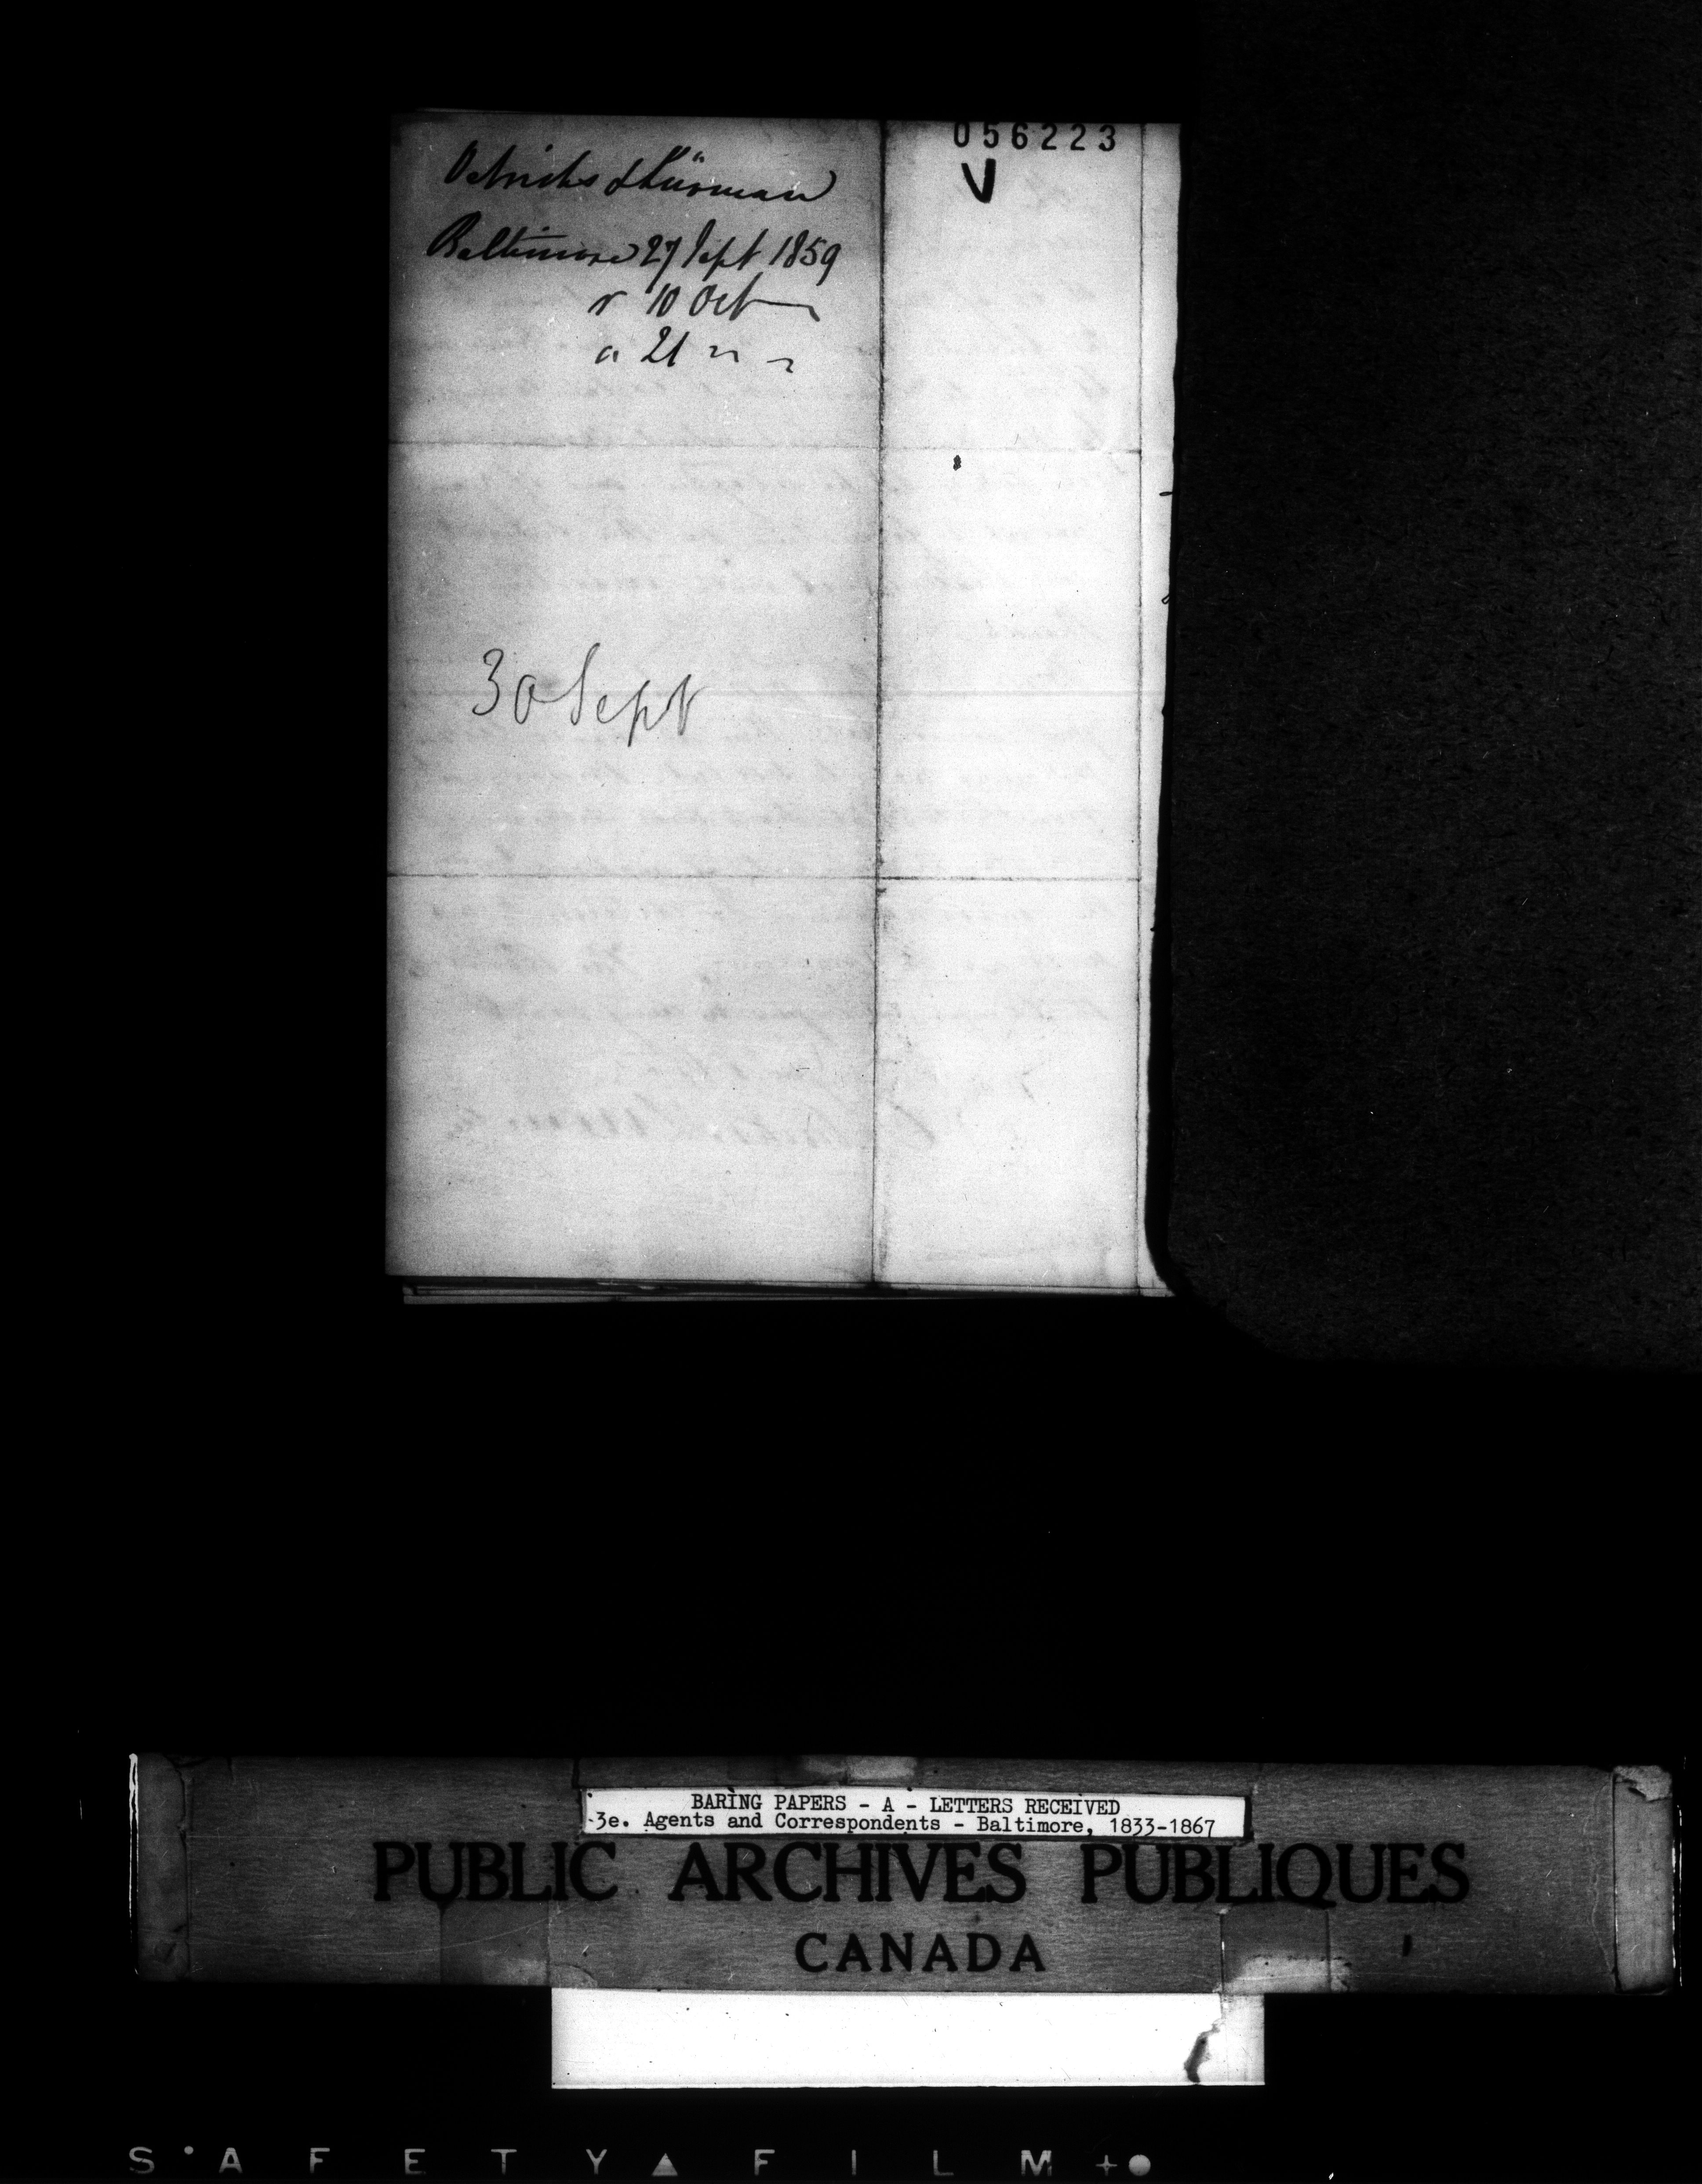 056223
V
Oelrichs & Lürman
Baltimore 27 Sept 1859
r 10 Oct
a 21 " "
30 Sept
BARING PAPERS - A - LETTERS RECEIVED
3e. Agents and Correspondents - Baltimore, 1833-1867
PUBLIC ARCHIVES PUBLIQUES
CANADA
SAFETY FILM